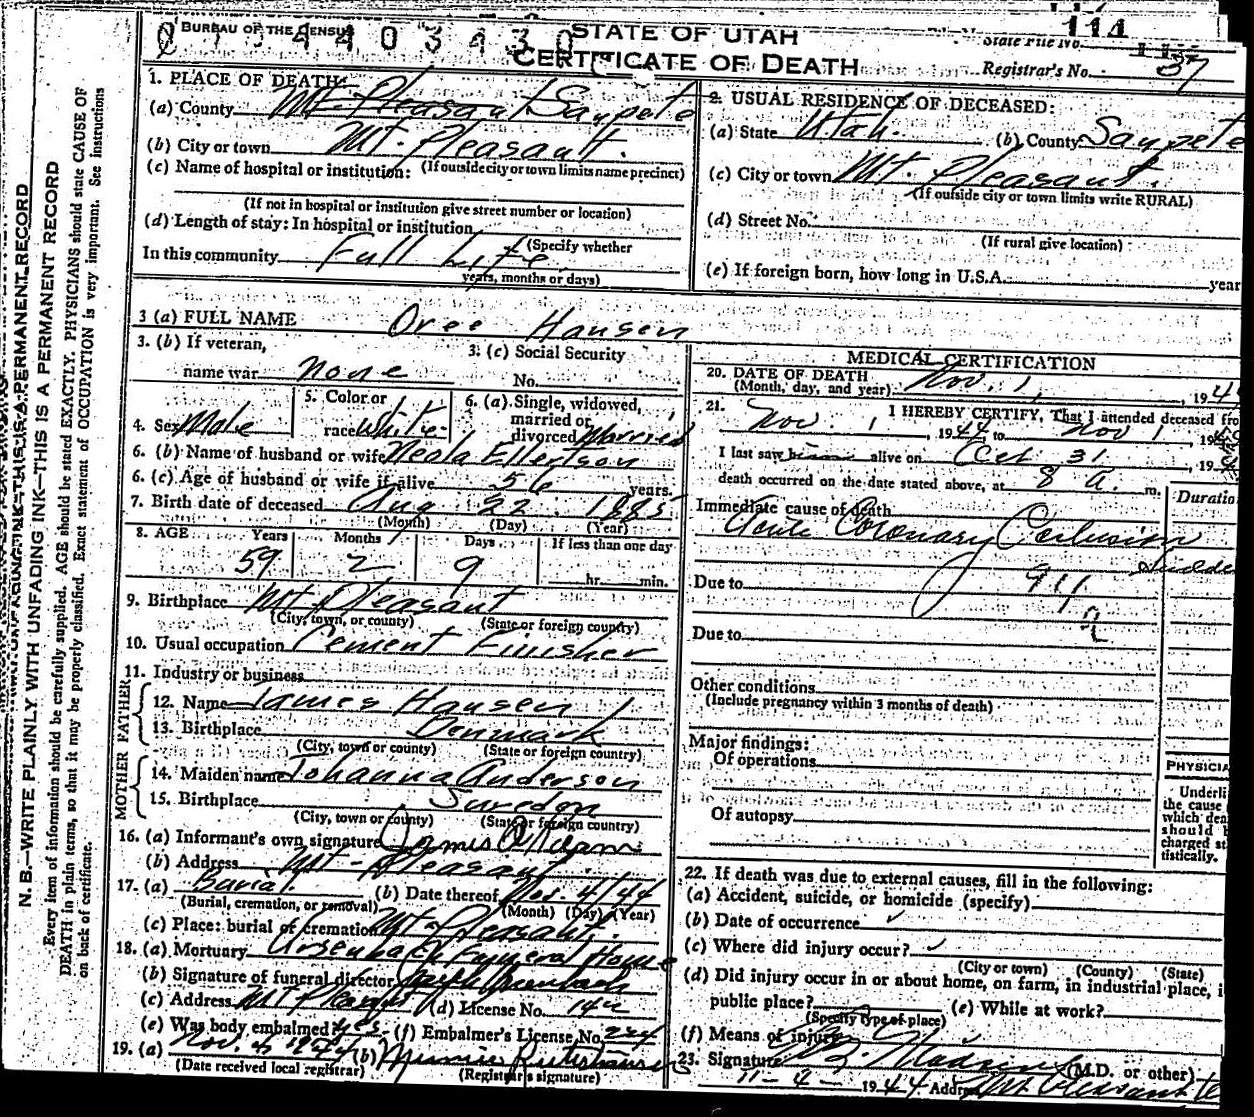 BUREAU OF THE CENSUS
STATE OF UTAH
CERTIFICATE OF DEATH
114
State File No.
Registrar's No. 37
1. PLACE OF DEATH:
(a) County Mt. Pleasant Sanpete
(b) City or town Mt. Pleasant.
(If outside city or town limits name precinct)
(c) Name of hospital or institution:
(If not in hospital or institution give street number or location)
(d) Length of stay: In hospital or institution
(Specify whether
In this community Full Life
years, months or days)
2. USUAL RESIDENCE OF DECEASED:
(a) State Utah. (b) County Sanpete
(c) City or town Mt. Pleasant.
(If outside city or town limits write RURAL)
(d) Street No.
(If rural give location)
(e) If foreign born, how long in U.S.A. year
3 (a) FULL NAME Oree Hansen
3. (b) If veteran,
name war none
3. (c) Social Security
No.
4. Sex Male
5. Color or
race White
6. (a) Single, widowed,
married or
divorced Married
6. (b) Name of husband or wife Neola Ellertson
6. (c) Age of husband or wife if alive 56 years.
7. Birth date of deceased Aug 22 1885
(Month) (Day) (Year)
8. AGE Years Months Days If less than one day
59 2 9 hr. min.
9. Birthplace Mt Pleasant
(City, town, or county) (State or foreign country)
10. Usual occupation Cement Finisher
11. Industry or business
FATHER
12. Name James Hansen
13. Birthplace Denmark
(City, town or county) (State or foreign country)
MOTHER
14. Maiden name Johanna Anderson
15. Birthplace Suredon
(City, town or county) (State or foreign country)
16. (a) Informant's own signature James
(b) Address Mt. Pleasant.
17. (a) Burial. (b) Date thereof Nov. 4/44
(Burial, cremation, or removal) (Month) (Day) (Year)
(c) Place: burial or cremation Mt. Pleasant.
18. (a) Mortuary Ursenbach Funeral Home
(b) Signature of funeral director Ursenbach
(c) Address Mt Pleasant (d) License No. 142
(e) Was body embalmed? yes. (f) Embalmer's License No. 224
19. (a) Nov. 4 1944 (b) Minnie
(Date received local registrar) (Registrar's signature)
MEDICAL CERTIFICATION
20. DATE OF DEATH
(Month, day, and year) Nov. 1, , 194
21. I HEREBY CERTIFY, That I attended deceased fro
Nov. 1, 1944, to Nov 1, 19
I last saw him alive on Oct 31, 19
death occurred on the date stated above, at 8 a. m.
Duratio
Immediate cause of death
Acute Coronary Occlusion
Due to
Due to
Other conditions
(Include pregnancy within 3 months of death)
Major findings:
Of operations
Of autopsy
PHYSICIA
Underli
the cause
which dea
should b
charged st
tistically.
22. If death was due to external causes, fill in the following:
(a) Accident, suicide, or homicide (specify)
(b) Date of occurrence ✓
(c) Where did injury occur? ✓
(City or town) (County) (State)
(d) Did injury occur in or about home, on farm, in industrial place, i
public place? (e) While at work?
(Specify type of place)
(f) Means of injury
23. Signature (M.D. or other)
11-4-1944 Address Mt Pleasant
N. B.—WRITE PLAINLY WITH UNFADING INK—THIS IS A PERMANENT RECORD
Every item of information should be carefully supplied. AGE should be stated EXACTLY. PHYSICIANS should state CAUSE OF
DEATH in plain terms, so that it may be properly classified. Exact statement of OCCUPATION is very important. See instructions
on back of certificate.